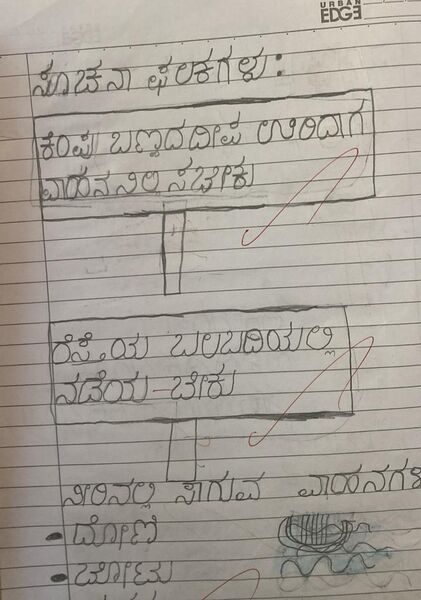 URBAN
EDGE
ಸೂಚನಾ ಫಲಕಗಳು:
ಕೆಂಪು ಬಣ್ಣದ ದೀಪ ಉರಿದಾಗ
ವಾಹನ ನಿಲ್ಲಿಸಬೇಕು
ರಸ್ತೆಯ ಬಲಬದಿಯಲ್ಲಿ
ನಡೆಯ-ಬೇಕು
ನೀರಿನಲ್ಲಿ ಸಾಗುವ ವಾಹನಗಳ
• ದೋಣಿ
• ಬೋಟು